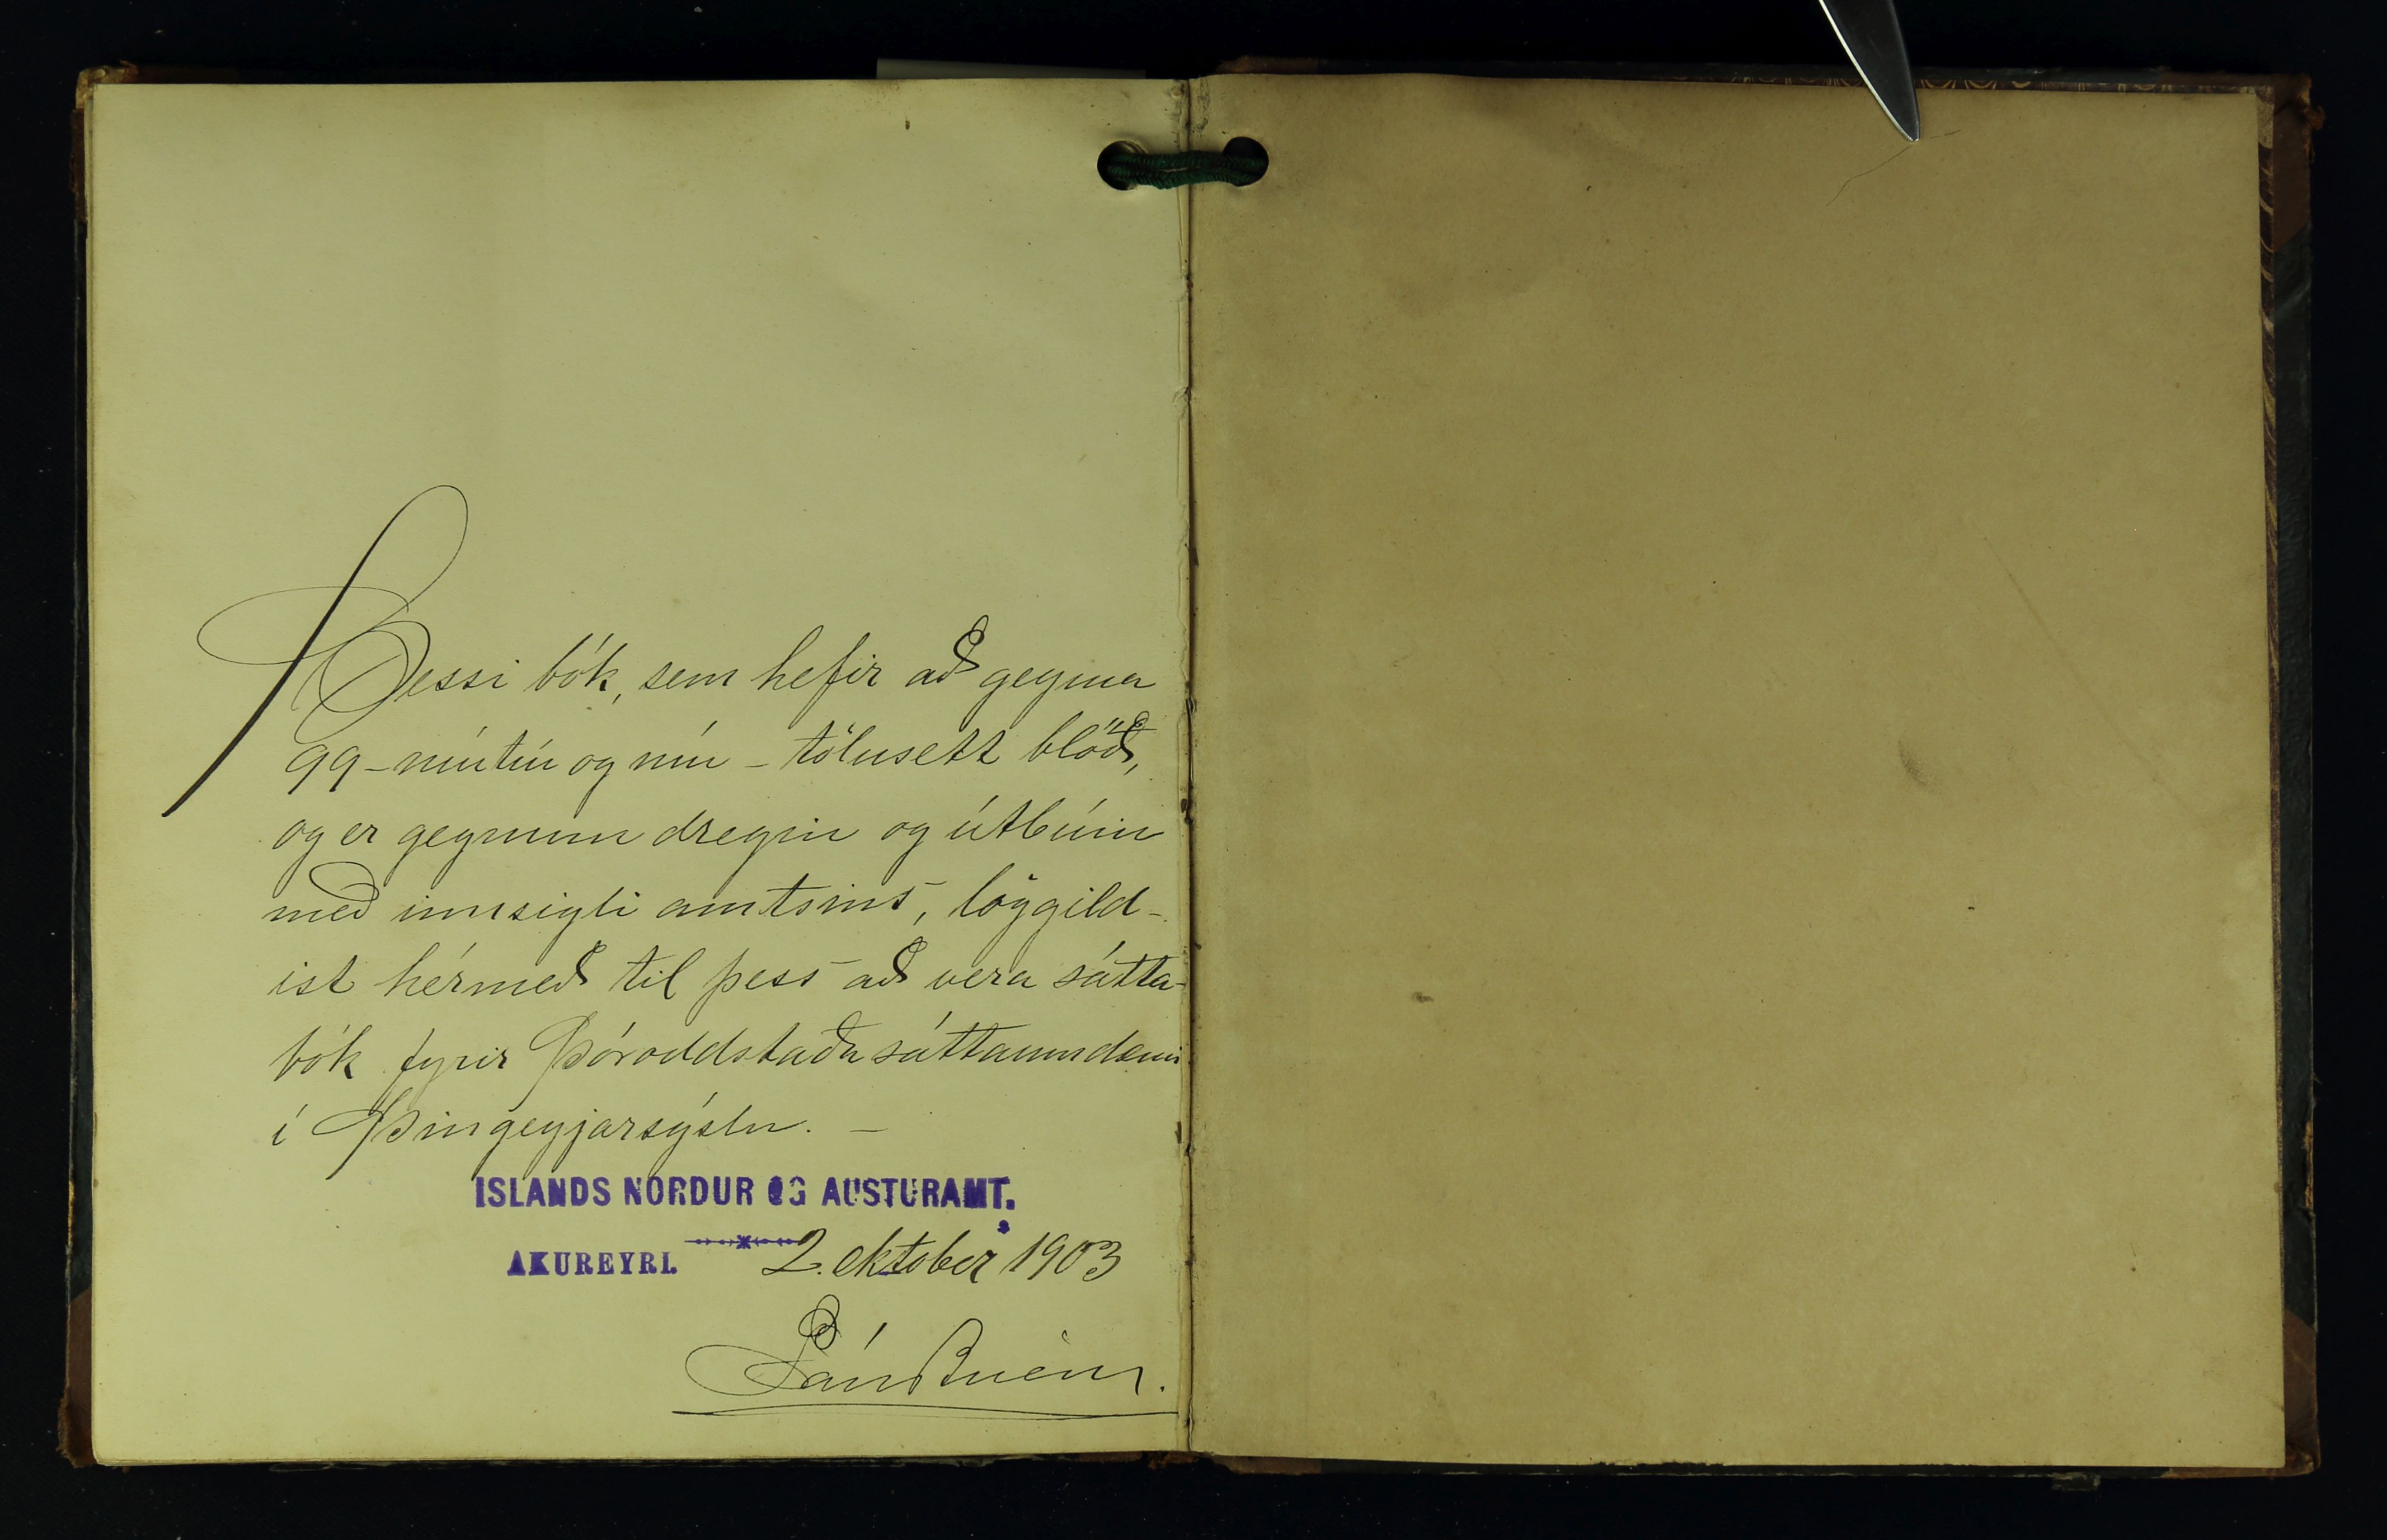 Þessi bók, sem hefir að geyma
99 - níutíu og níu - tölusett blöð,
og er gegnum dregin og útbúin
með innsigli amtsins, löggild-
ist hérmeð til þess að vera sátta-
bók fyrir Þóroddstaða sáttaumdæmi
í Þingeyjarsýslu. -
ISLANDS NORDUR OG AUSTURAMT.
AKUREYRI. 2. október 1903
Páll Briem.